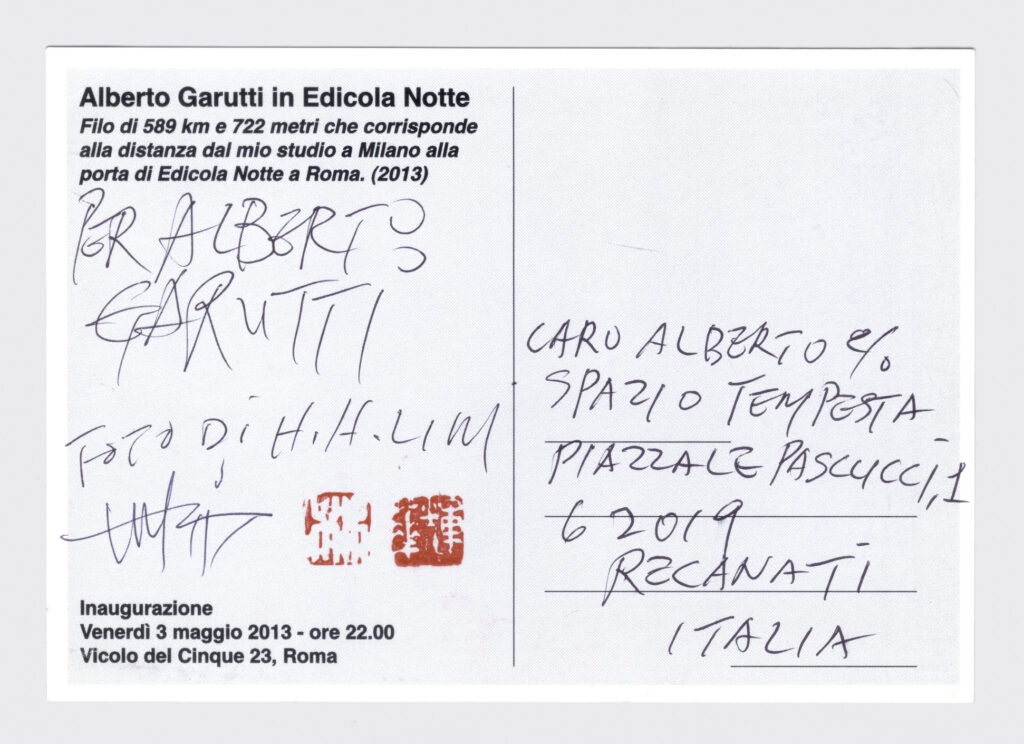 Alberto Garutti in Edicola Notte
Filo di 589 km e 722 metri che corrisponde
alla distanza dal mio studio a Milano alla
porta di Edicola Notte a Roma. (2013)
PER ALBERTO
GARUTTI
FOTO Di H.H.LIM
Inaugurazione
Venerdì 3 maggio 2013 - ore 22.00
Vicolo del Cinque 23, Roma
CARO ALBERTO c/o
SPAZIO TEMPESTA
PIAZZALE PASCUCCI,1
62019
RECANATI
ITALIA